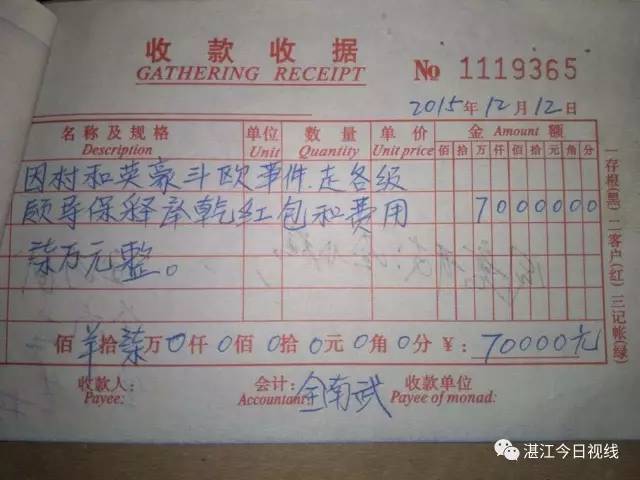 收款收据
GATHERING RECEIPT No 1119365
2015年12月12日
名称及规格 单位 数量 单价 金 Amount 额
Description Unit Quantity Unit price 佰 拾 万 仟 佰 拾 元 角 分
因村和英豪斗欧事件.走各级
顾导保释泽乾红包和费用 7000000
柒万元整。
佰 拾柒万0仟0佰0拾0元0角0分 ¥: 70000元
收款人: 会计: 全南武 收款单位
Payee: Accountant Payee of monad:
一存根(黑) 二客户(红) 三记帐(绿)
湛江今日视线